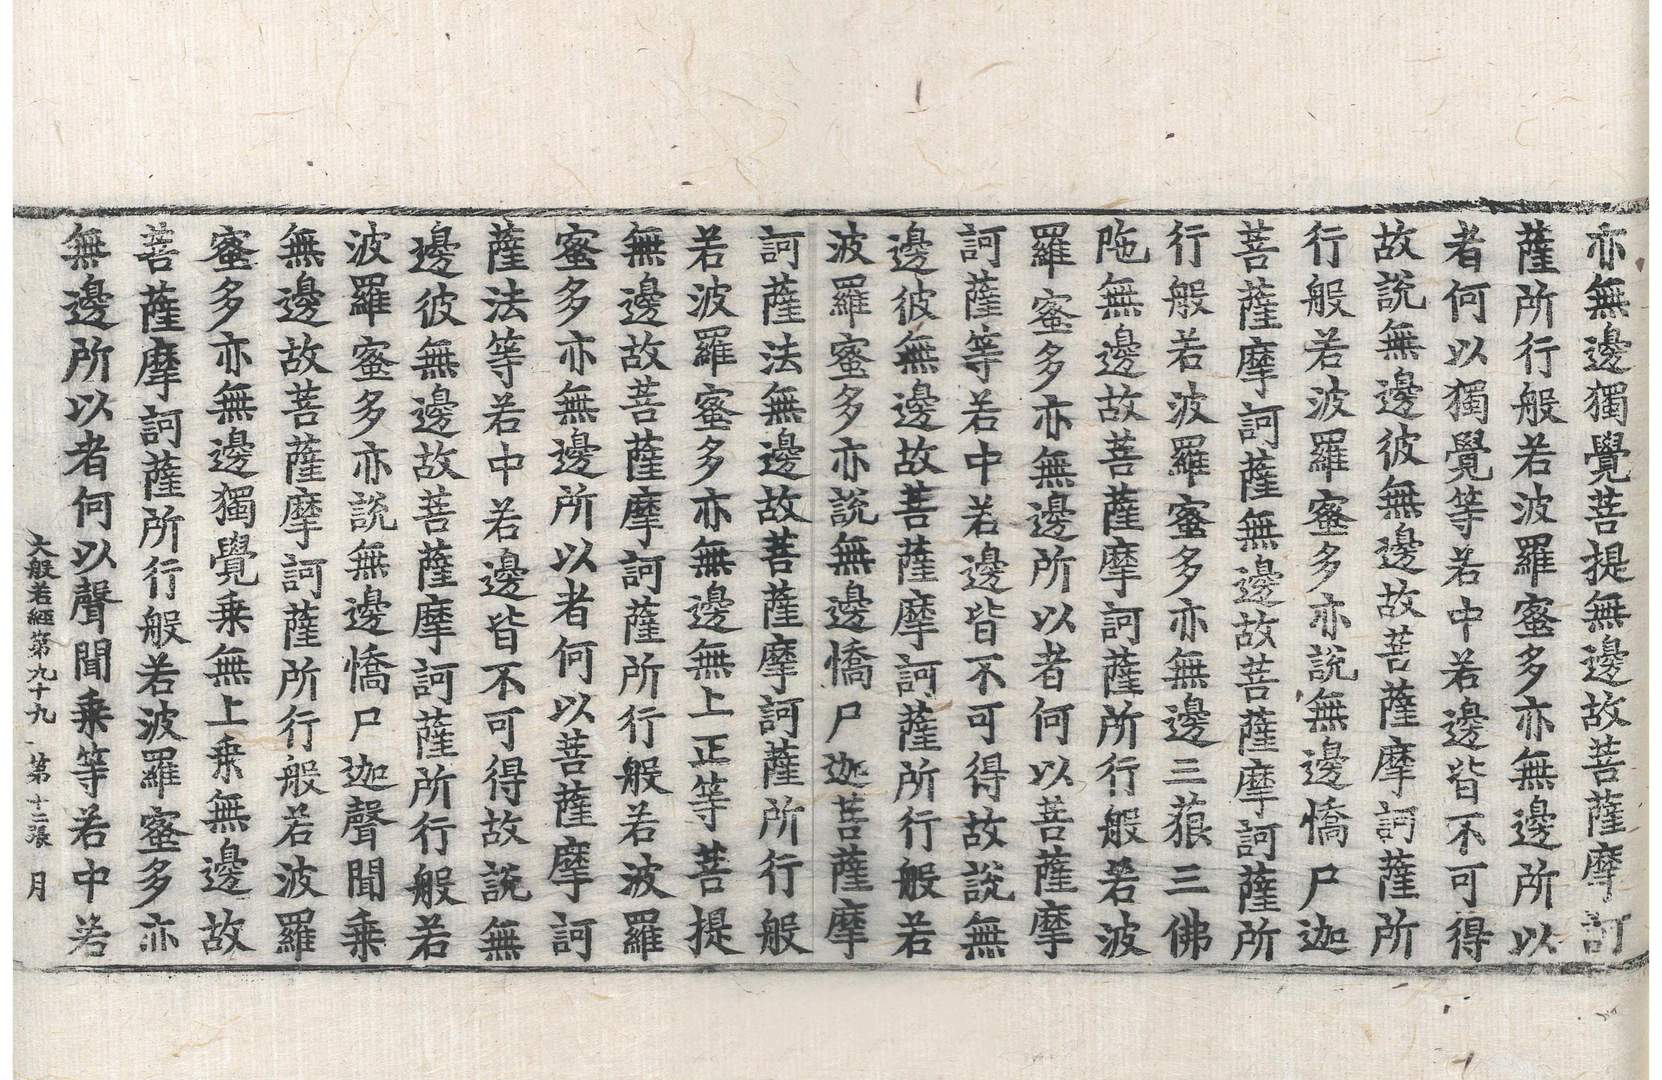 亦無邊獨覺菩提無邊故菩薩摩訶
薩所行般若波羅蜜多亦無邊所以
者何以獨覺等若中若邊皆不可得
故說無邊彼無邊故菩薩摩訶薩所
行般若波羅蜜多亦說無邊憍尸迦
菩薩摩訶薩無邊故菩薩摩訶薩所
行般若波羅蜜多亦無邊三藐三佛
陁無邊故菩薩摩訶薩所行般若波
羅蜜多亦無邊所以者何以菩薩摩
訶薩等若中若邊皆不可得故說無
邊彼無邊故菩薩摩訶薩所行般若
波羅蜜多亦說無邊憍尸迦菩薩摩
訶薩法無邊故菩薩摩訶薩所行般
若波羅蜜多亦無邊無上正等菩提
無邊故菩薩摩訶薩所行般若波羅
蜜多亦無邊所以者何以菩薩摩訶
薩法等若中若邊皆不可得故說無
邊彼無邊故菩薩摩訶薩所行般若
波羅蜜多亦說無邊憍尸迦聲聞乗
無邊故菩薩摩訶薩所行般若波羅
蜜多亦無邊獨覺乗無上乗無邊故
菩薩摩訶薩所行般若波羅蜜多亦
無邊所以者何以聲聞乗等若中若
大般若經第九十九 第十二張 月